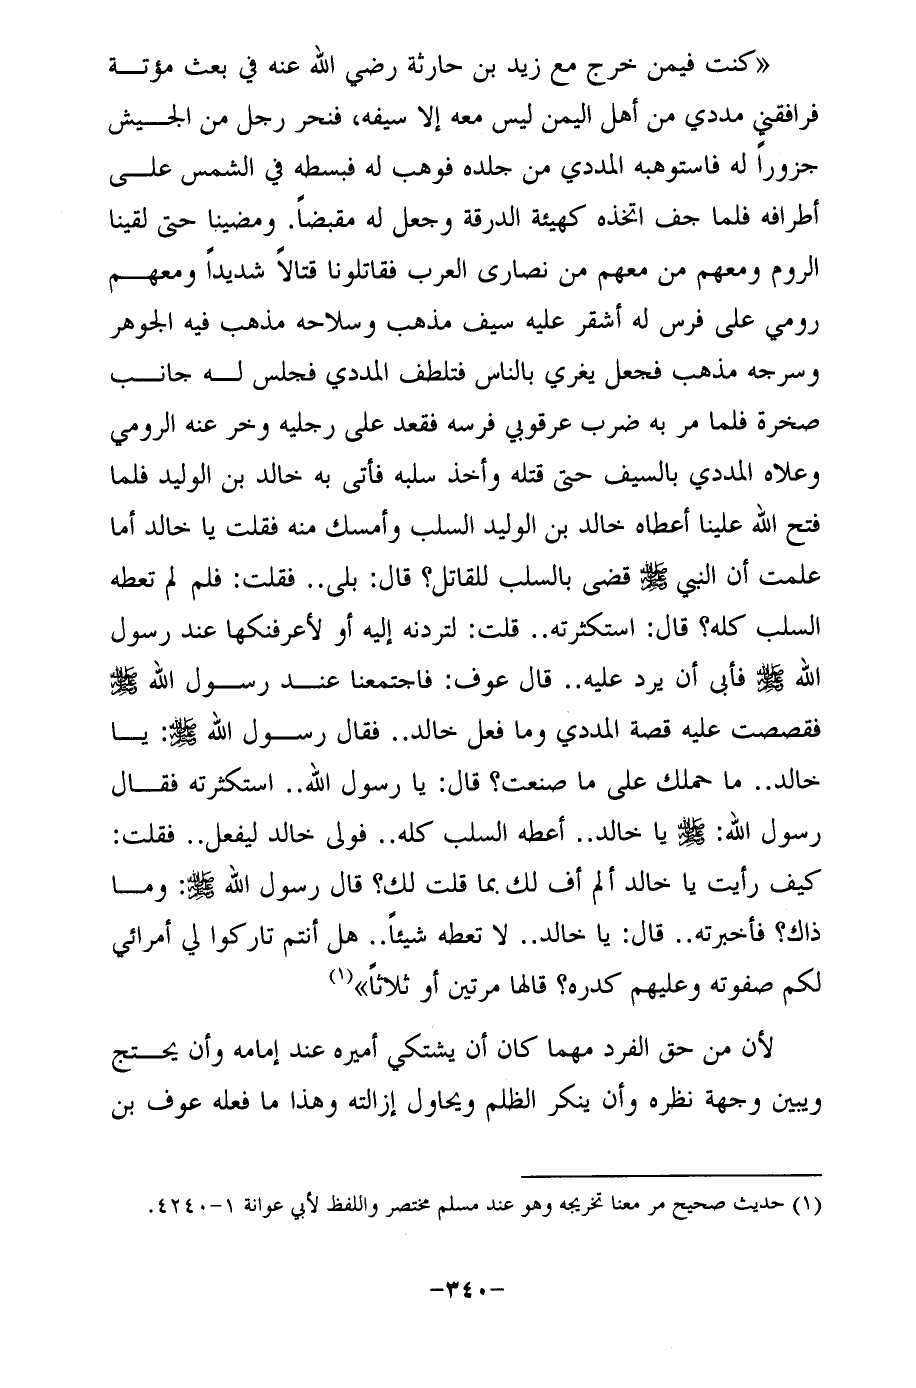 «كنت فيمن خرج مع زيد بن حارثة رضي الله عنه في بعث مؤتـــة
فرافقني مددي من أهل اليمن ليس معه إلا سيفه، فنحر رجل من الجـــيش
جزوراً له فاستوهبه المددي من جلده فوهب له فبسطه في الشمس علـــى
أطرافه فلما جف اتخذه كهيئة الدرقة وجعل له مقبضاً. ومضينا حتى لقينا
الروم ومعهم من معهم من نصارى العرب فقاتلونا قتالاً شديداً ومعهـــم
رومي على فرس له أشقر عليه سيف مذهب وسلاحه مذهب فيه الجوهر
وسرجه مذهب فجعل يغري بالناس فتلطف المددي فجلس لـــه جانـــب
صخرة فلما مر به ضرب عرقوبي فرسه فقعد على رجليه وخر عنه الرومي
وعلاه المددي بالسيف حتى قتله وأخذ سلبه فأتى به خالد بن الوليد فلما
فتح الله علينا أعطاه خالد بن الوليد السلب وأمسك منه فقلت يا خالد أما
علمت أن النبي ﷺ قضى بالسلب للقاتل؟ قال: بلى.. فقلت: فلم لم تعطه
السلب كله؟ قال: استكثرته.. قلت: لتردنه إليه أو لأعرفنكها عند رسول
الله ﷺ فأبى أن يرد عليه.. قال عوف: فاجتمعنا عنـــد رســـول الله ﷺ
فقصصت عليه قصة المددي وما فعل خالد.. فقال رســـول الله ﷺ: يـــا
خالد.. ما حملك على ما صنعت؟ قال: يا رسول الله.. استكثرته فقـــال
رسول الله: ﷺ يا خالد.. أعطه السلب كله.. فولى خالد ليفعل.. فقلت:
كيف رأيت يا خالد ألم أف لك بما قلت لك؟ قال رسول الله ﷺ: ومـــا
ذاك؟ فأخبرته.. قال: يا خالد.. لا تعطه شيئاً.. هل أنتم تاركوا لي أمرائي
لكم صفوته وعليهم كدره؟ قالها مرتين أو ثلاثاً»(١)
لأن من حق الفرد مهما كان أن يشتكي أميره عند إمامه وأن يحـــتج
ويبين وجهة نظره وأن ينكر الظلم ويحاول إزالته وهذا ما فعله عوف بن
(١) حديث صحيح مر معنا تخريجه وهو عند مسلم مختصر واللفظ لأبي عوانة ١-٤٢٤٠.
-٣٤٠-